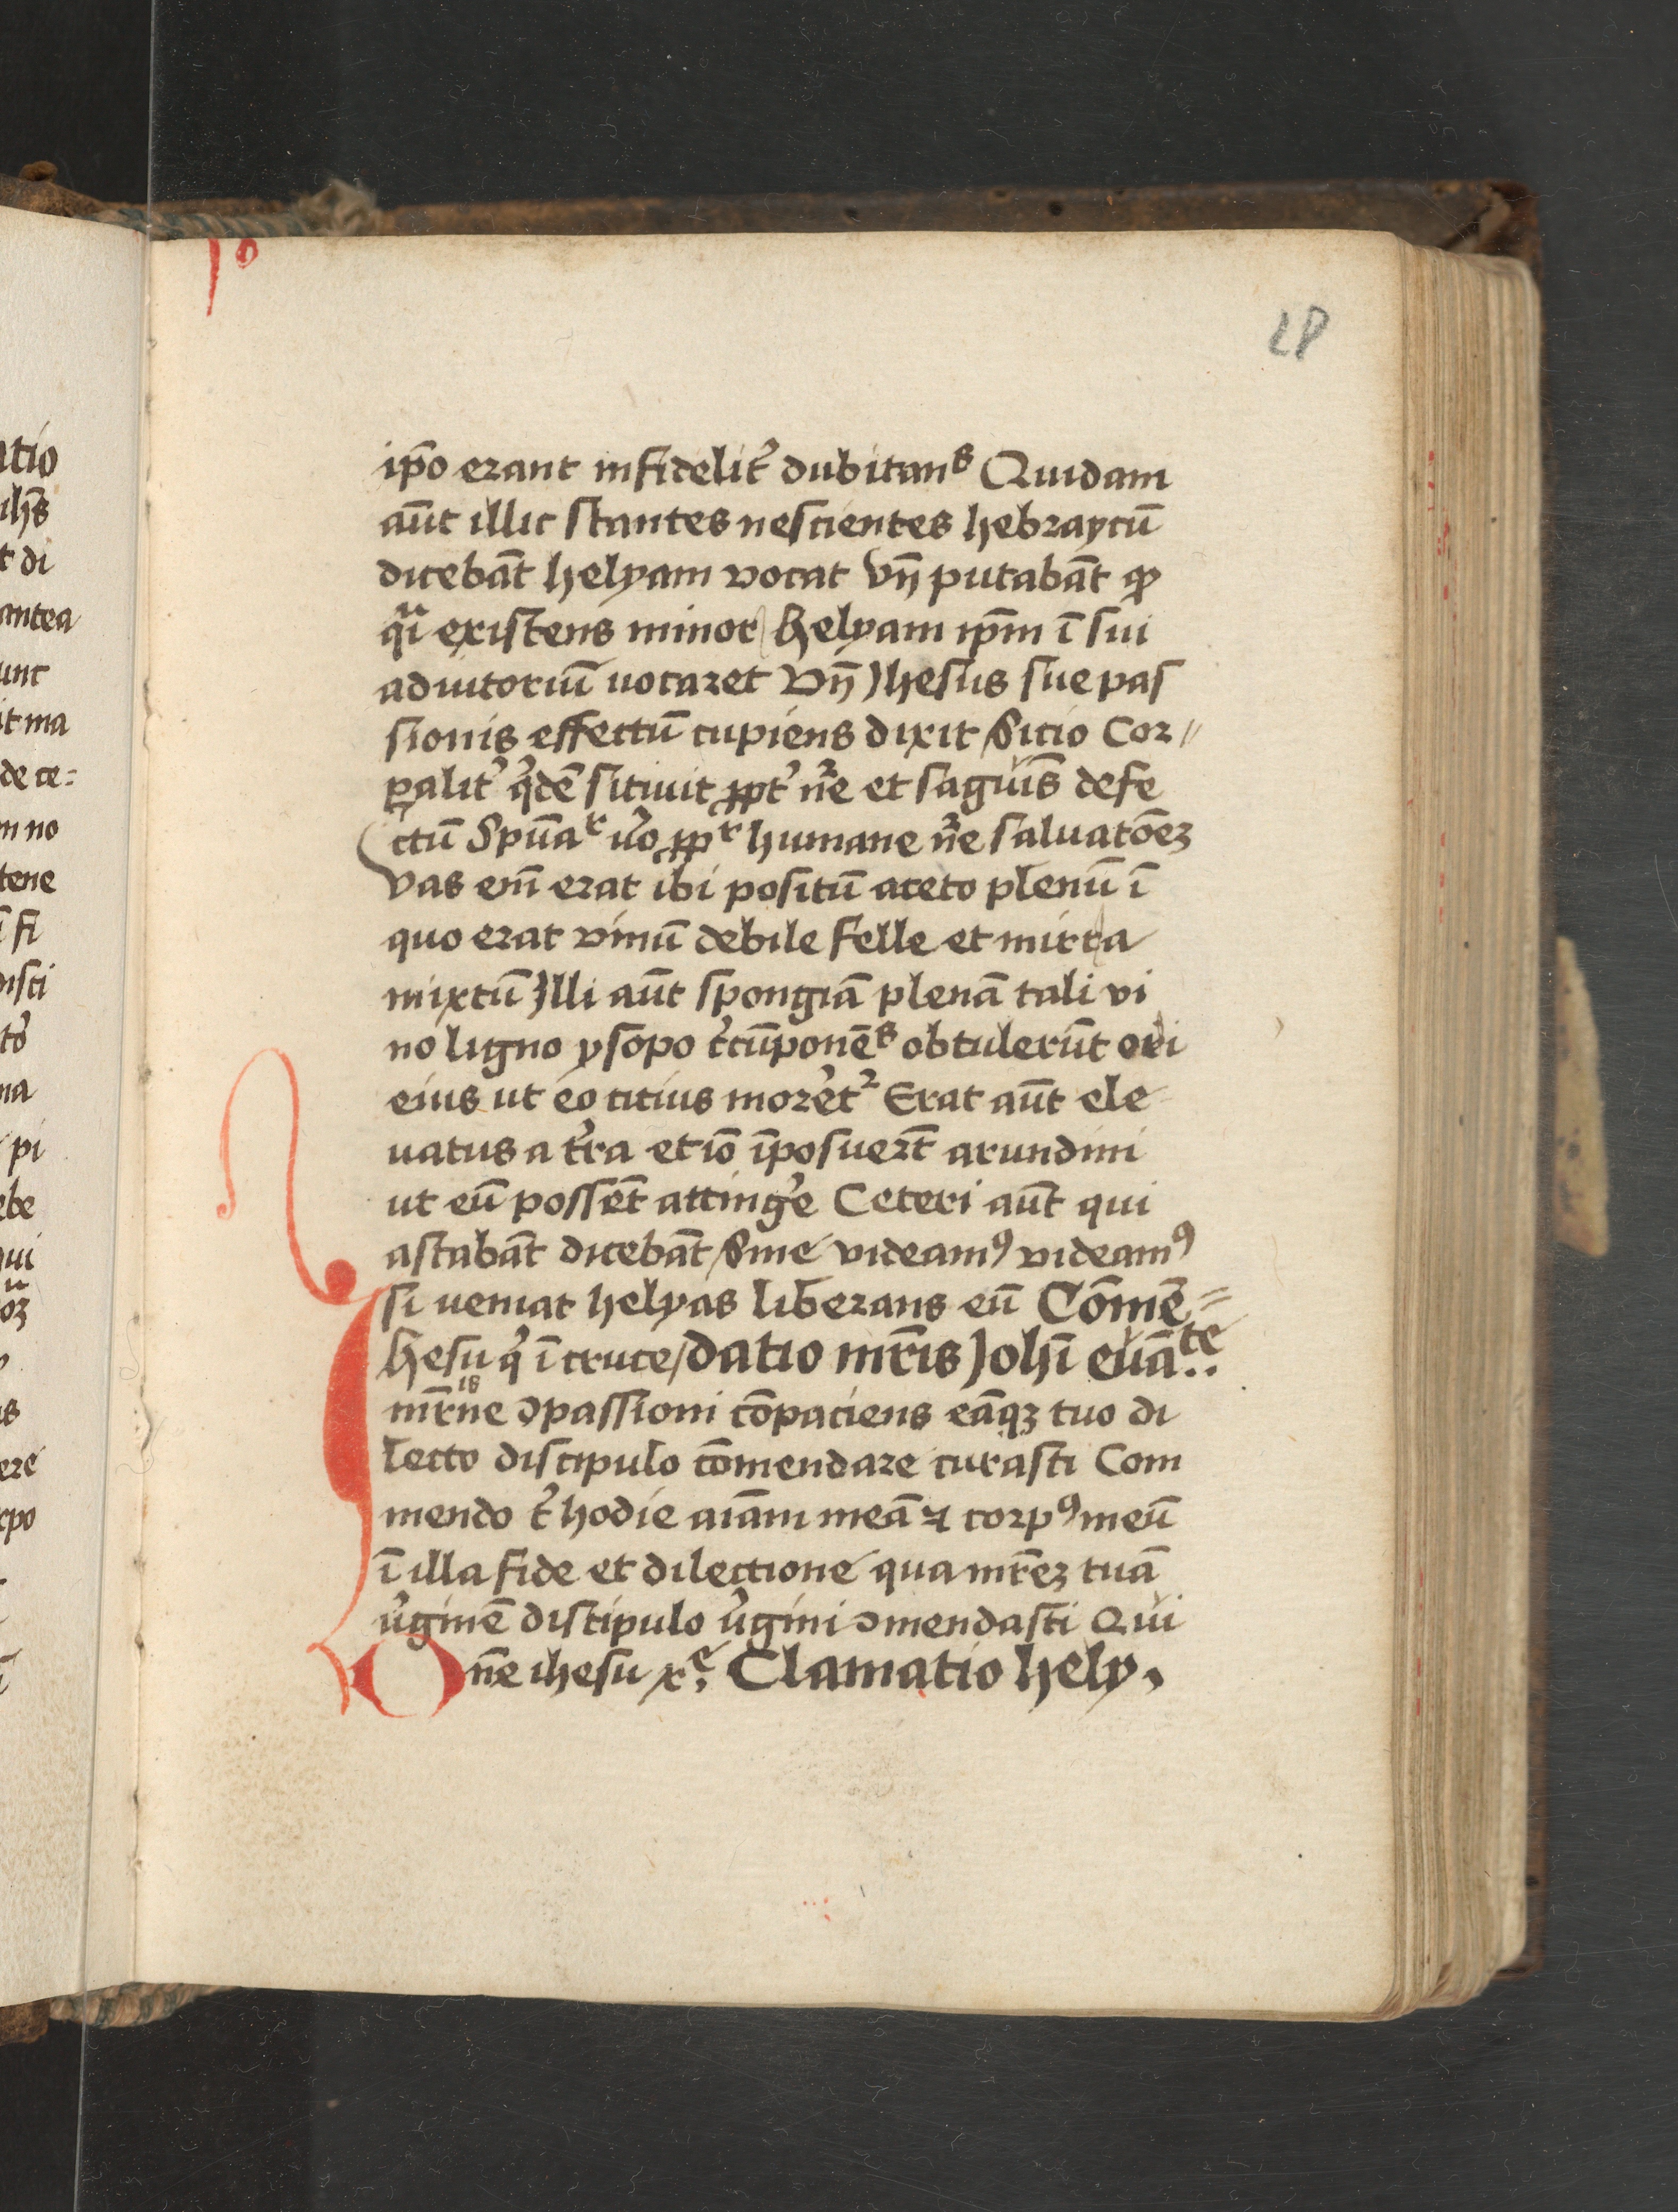 28
ip̄o erant infidelit᷒ dubitanˢ Quidam
aūt illic stantes nescientes hebraycū
dicebāt helyam vocat Vn̄ putabāt ꝙ
qͣi existens minor helyam ip̄m ī sui
adiutoriū uocaret Vn̄ Jhesus sue pas
sionis effectū cupiens dixit Sicio Cor〃
ꝑalit᷒ q̇dē sitiuit ꝓpt᷒ nr̄e et sagui̅s defe
ctū Spūaʳ u᷒o ꝓpʳ humane nr̄e saluatōeꝫ
Vas em̄ erat ibi positū aceto plenū ī
quo erat vinū debile felle et mirra
mixtū Jlli aūt spongiā plenā tali vi
no ligno ysopo c᷒cūponēˢ obtulerūt ori
eius ut eo citius moret᷒ᷣ Erat aūt ele
uatus a t᷒ra et iō īposuert̄ arundini
ut eū possēt attinge᷒ Ceteri aūt qui
astabāt dicebāt Sine videamꝰ videamꝰ
si veniat helyas liberans eū Cōmē〃
Jhesu q̇ ī cruce / datio mr̄is Johī euāᵗᵉ..
mr̄ne ꝯpassioni cōpaciens eāqꝫ tuo di
lecto discipulo cōmendare curasti Com
mendo t᷒ hodie aīam meā ⁊ corpꝰ meū
ī illa fide et dilectione qua mr̄eꝫ tuā
u᷒ginē discipulo u᷒gini ꝯmendasti Qui
Dn̄e ihesu xᵉ. Clamatio hely.